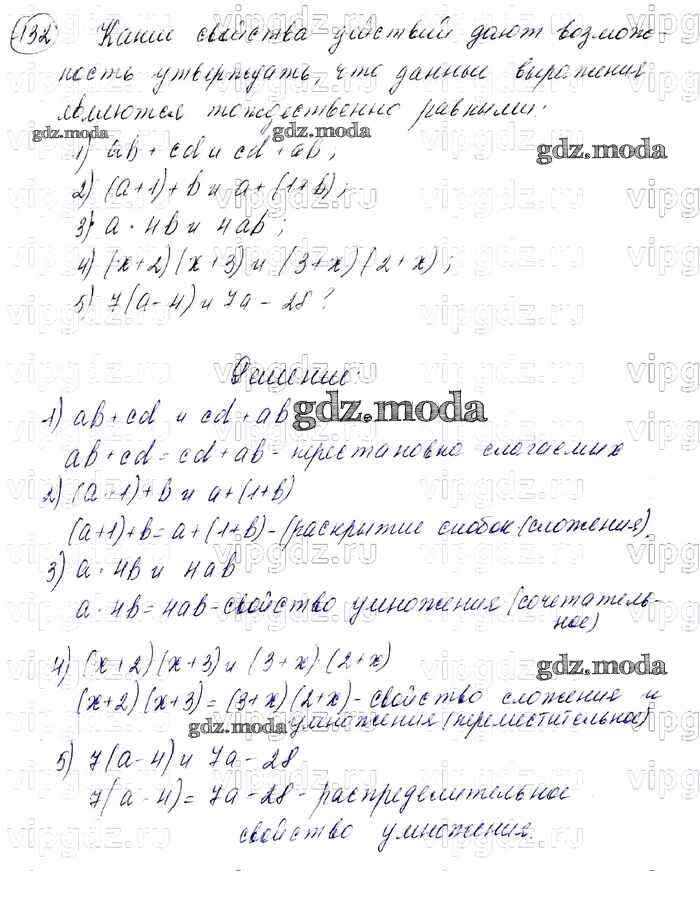 132) Какие свойства действий дают возмож-
ность утверждать, что данные выражения
являются тождественно равными:
gdz.moda gdz.moda
1) ab + cd и cd + ab;
gdz.moda
2) (a+1)+b и a+(1+b);
3) a · 4b и 4ab;
4) (x+2)(x+3) и (3+x)(2+x);
5) 7(a-4) и 7a-28?
Решение:
1) ab+cd и cd+ab
gdz.moda
ab+cd = cd+ab - перестановка слагаемых
2) (a+1)+b и a+(1+b)
(a+1)+b = a+(1+b) - (раскрытие скобок (сложения).
3) a · 4b и 4ab
a · 4b = 4ab - свойство умножения (сочетатель-
ное)
4) (x+2)(x+3) и (3+x)(2+x)
gdz.moda
(x+2)(x+3) = (3+x)(2+x) - свойство сложения и
gdz.moda умножения (переместительное)
5) 7(a-4) и 7a-28
7(a-4) = 7a-28 - распределительное
свойство умножения.
vipgdz.ru